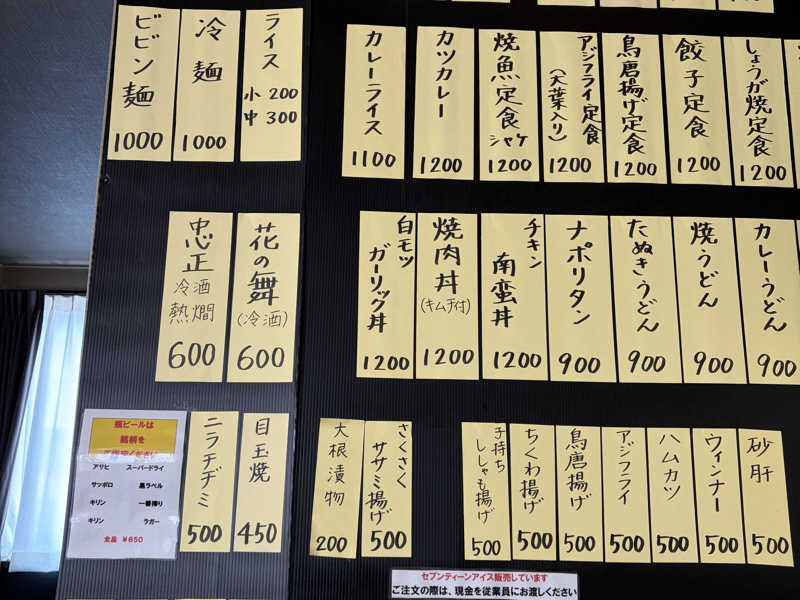 ビビン麺
1000
冷麺
1000
ライス
小 200
中 300
カレーライス
1100
カツカレー
1200
焼魚定食
シャケ
1200
アジフライ定食
(大葉入り)
1200
鳥唐揚げ定食
1200
餃子定食
1200
しょうが焼定食
1200
忠正
冷酒
熱燗
600
花の舞
(冷酒)
600
白モツ
ガーリック丼
1200
焼肉丼
(キムチ付)
1200
チキン
南蛮丼
1200
ナポリタン
900
たぬきうどん
900
焼うどん
900
カレーうどん
900
瓶ビールは
銘柄を
ご指定ください
アサヒ スーパードライ
サッポロ 黒ラベル
キリン 一番搾り
キリン ラガー
全品 ¥650
ニラチヂミ
500
目玉焼
450
大根漬物
200
さくさく
ササミ揚げ
500
子持ち
ししゃも揚げ
500
ちくわ揚げ
500
鳥唐揚げ
500
アジフライ
500
ハムカツ
500
ウィンナー
500
砂肝
500
セブンティーンアイス販売しています
ご注文の際は、現金を従業員にお渡しください